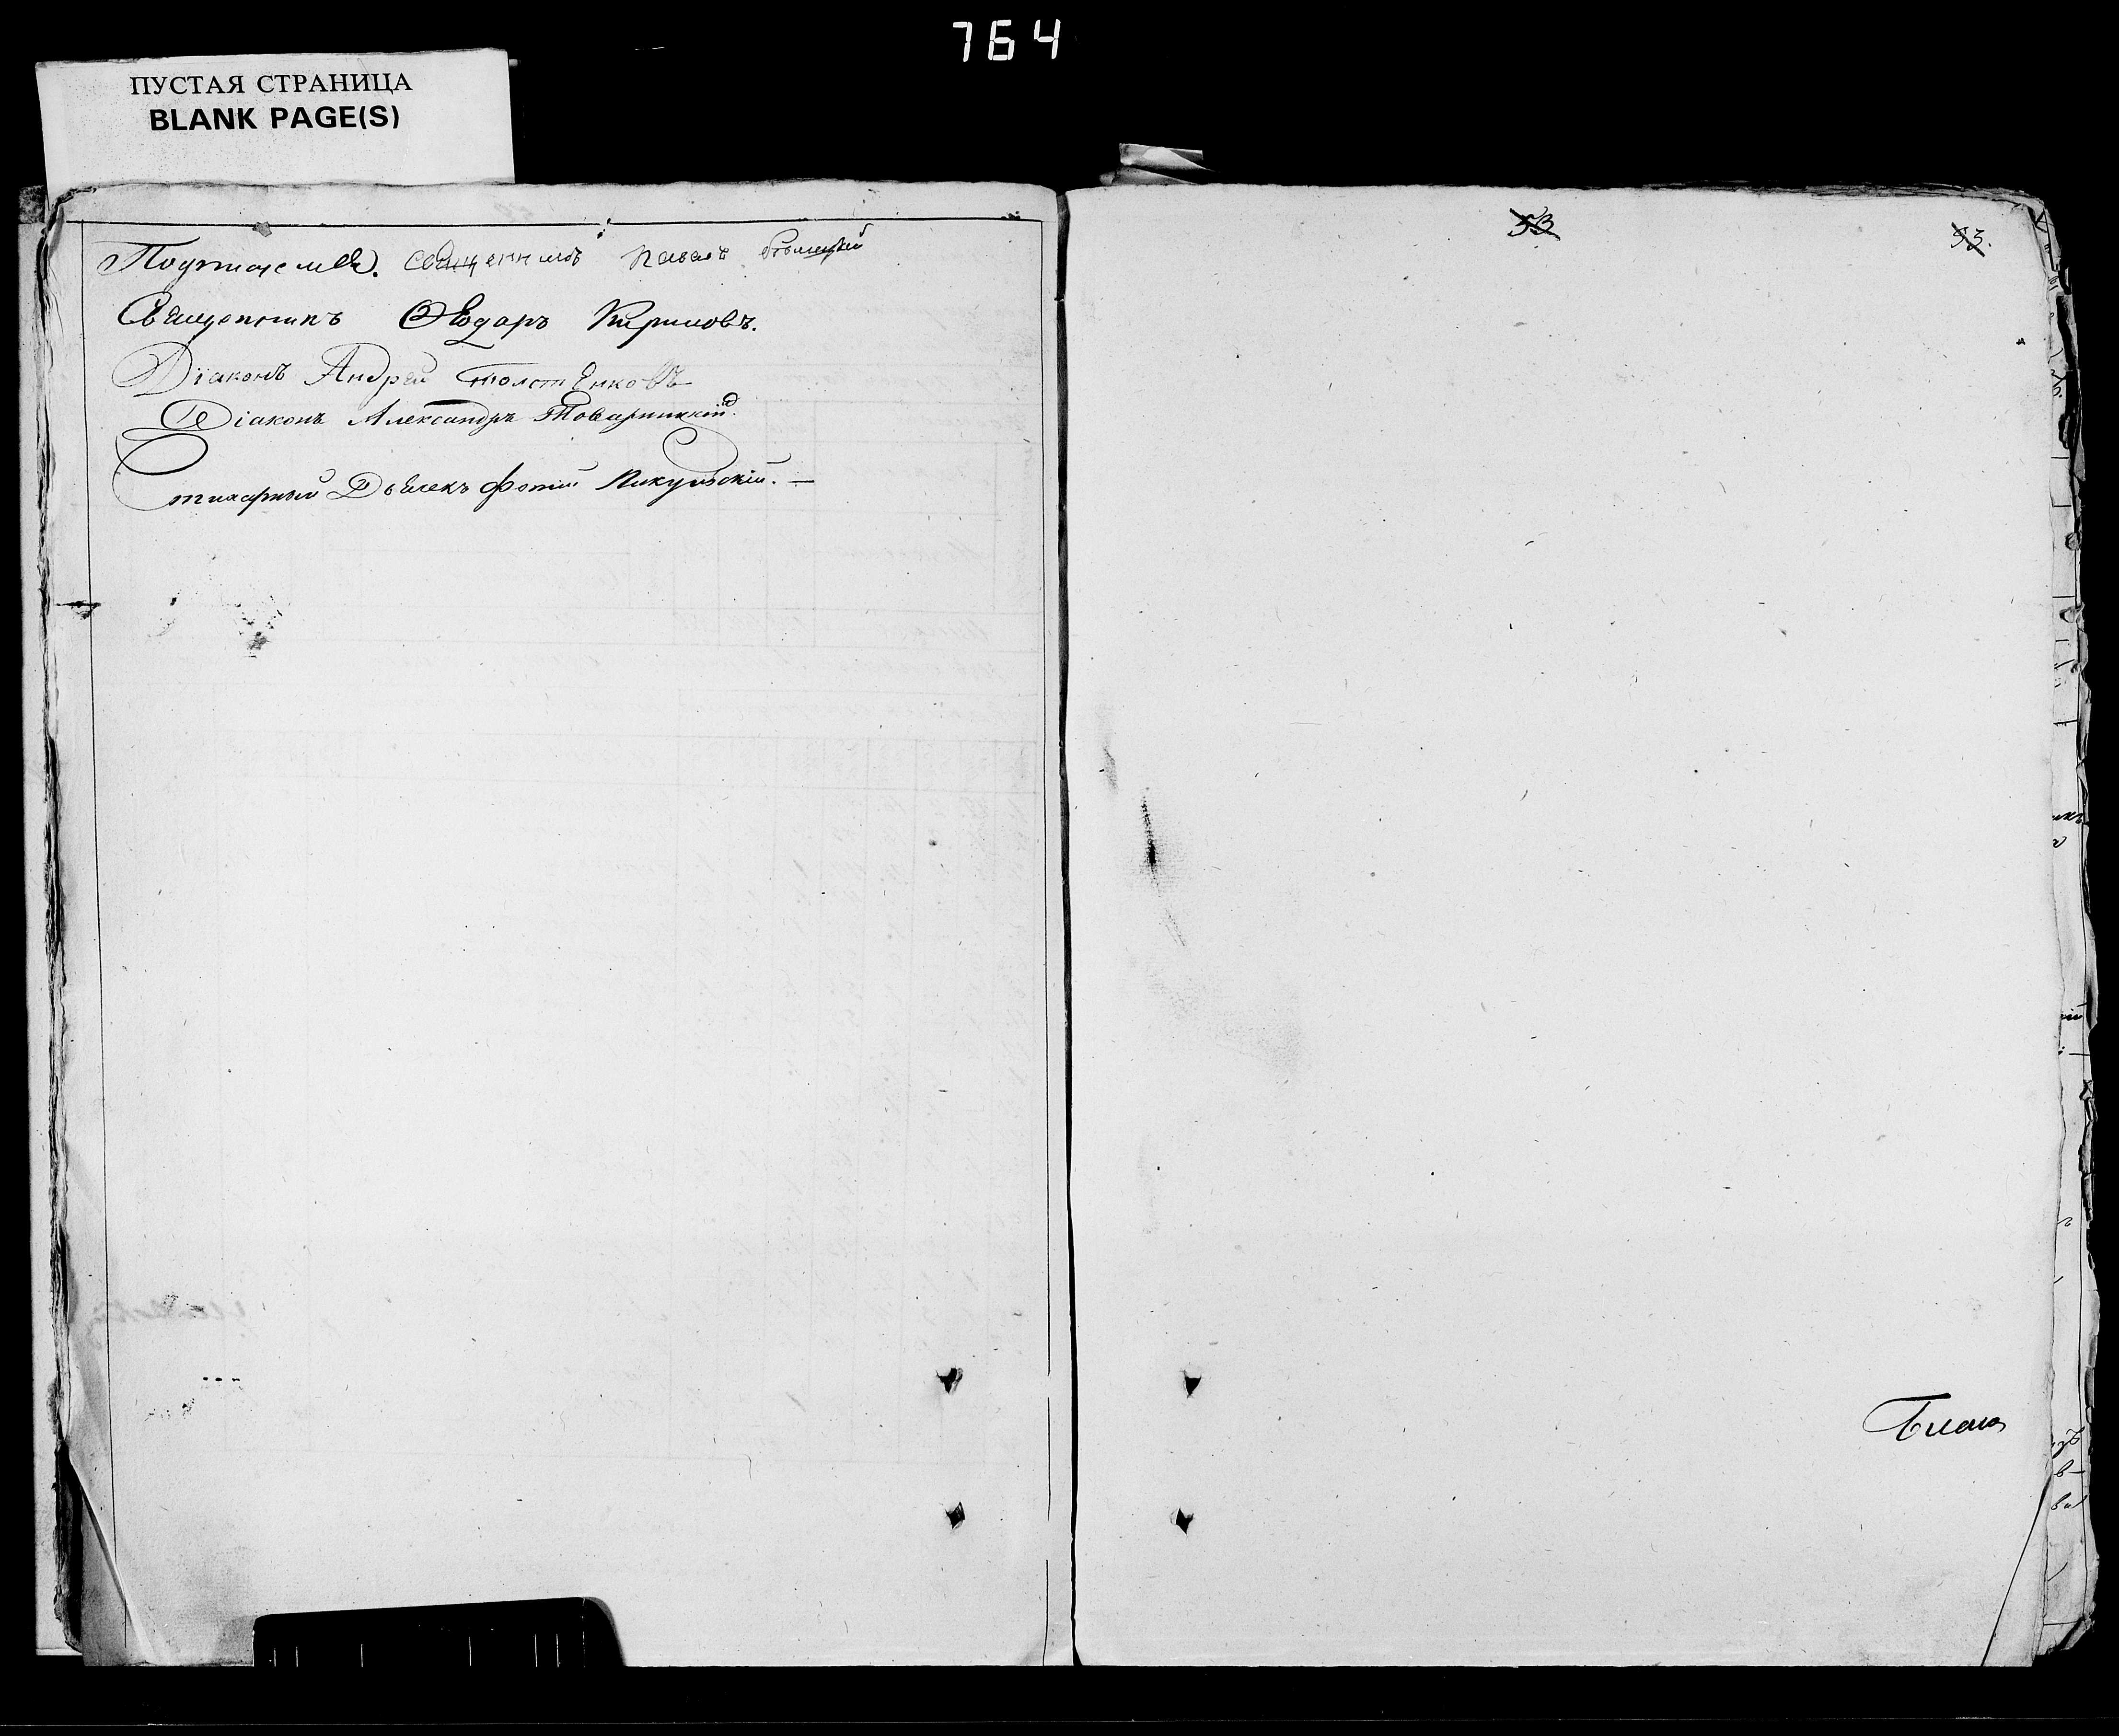 764
ПУСТАЯ СТРАНИЦА
BLANK PAGE(S)
53
53.
Священникъ Павелъ
Священникъ Ѳеодоръ Кириловъ.
Діаконъ Андрей Толстенковъ
Діаконъ Александръ Товарницкій.
Стихарный Дьячекъ Фотій Пикульскій. —